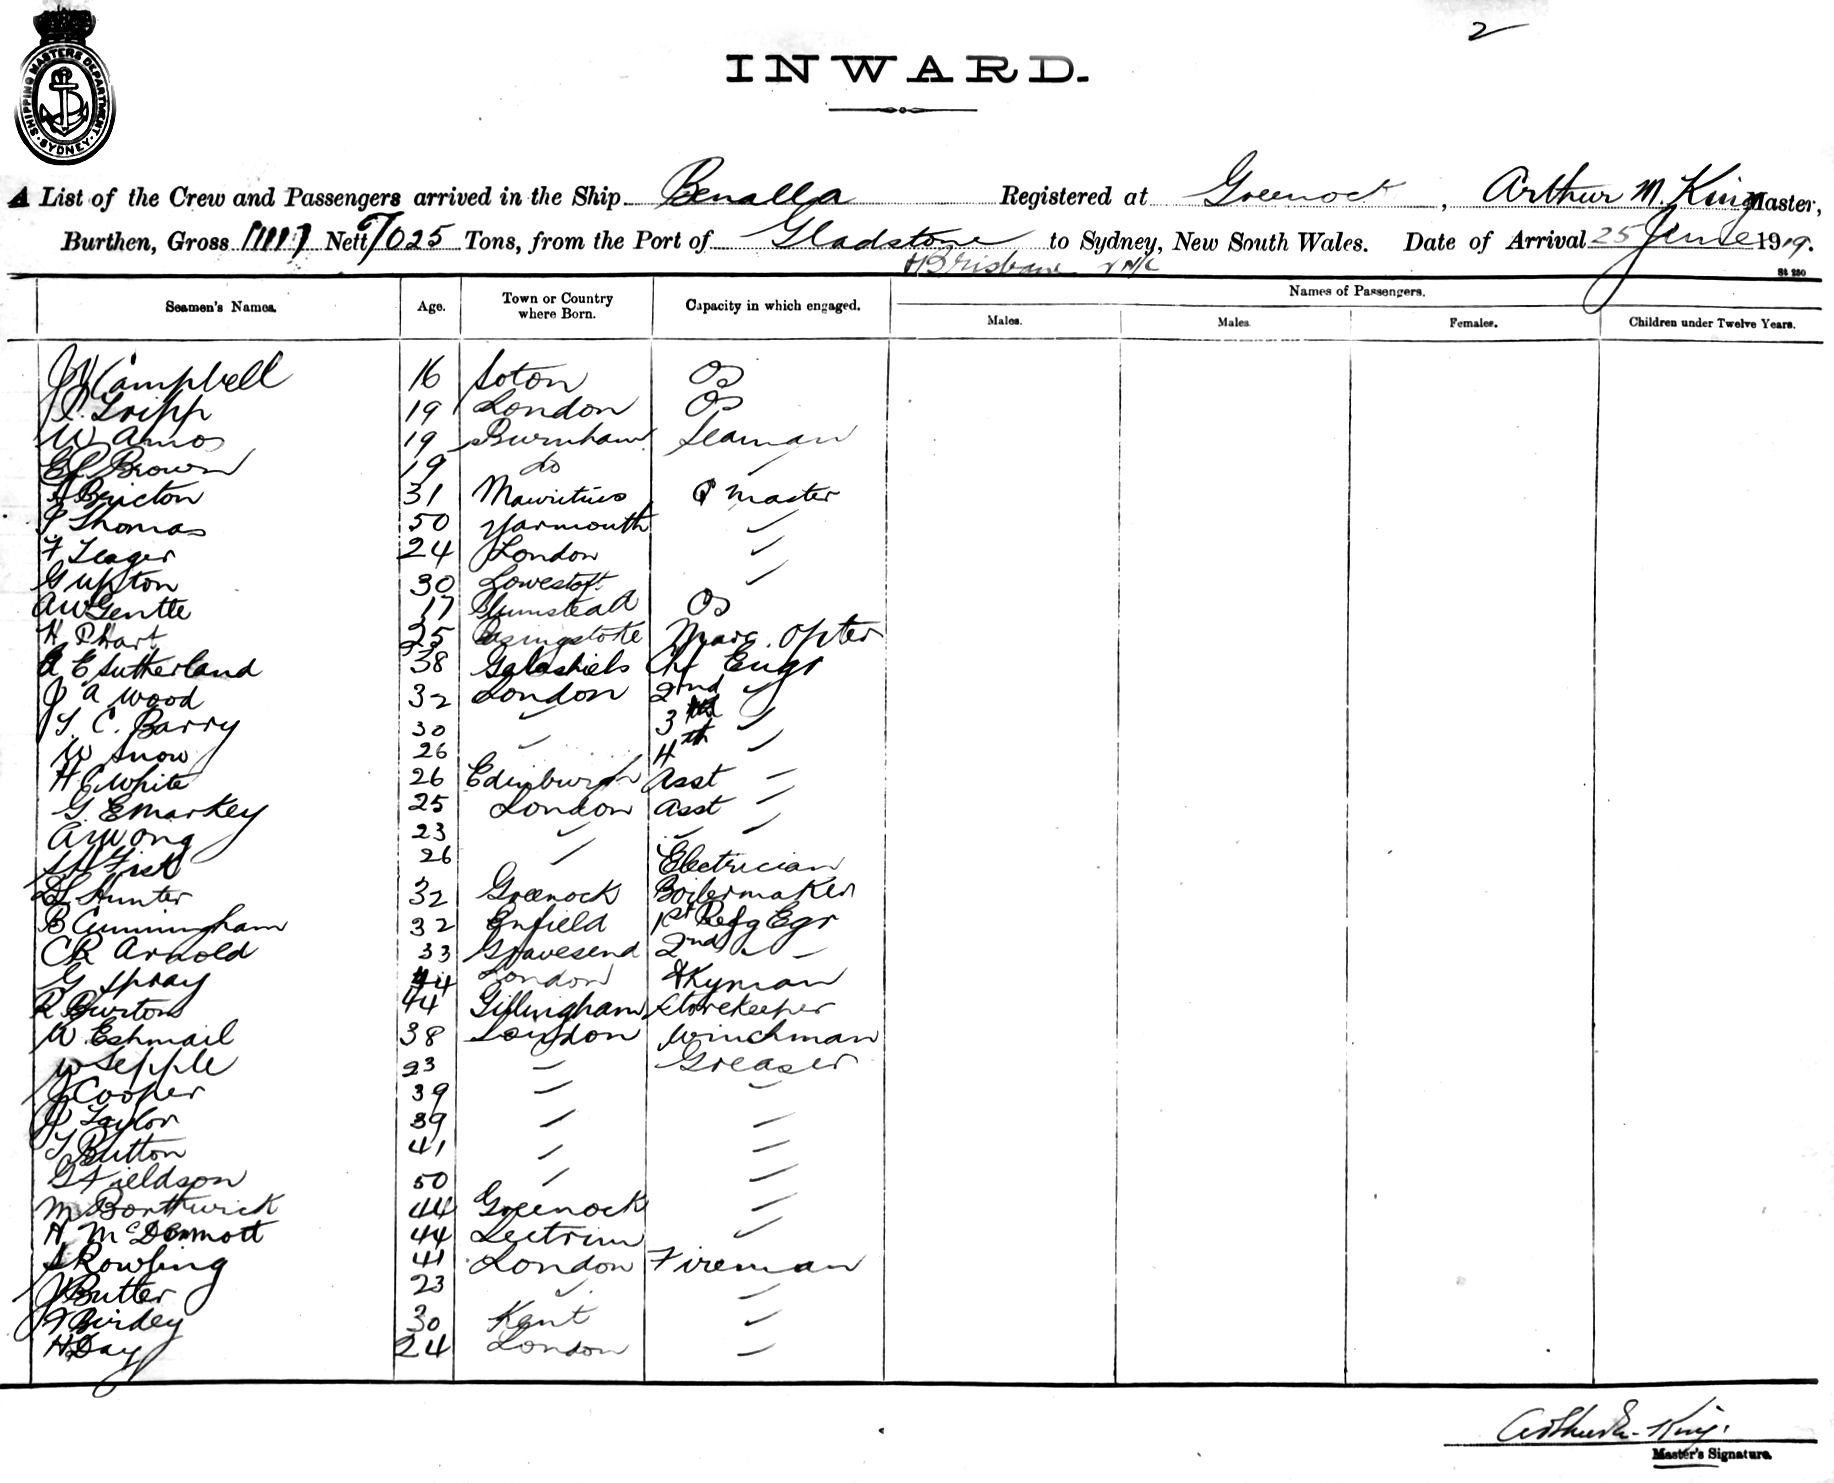 2
SHIPPING MASTERS DEPARTMENT SYDNEY
INWARD.
A List of the Crew and Passengers arrived in the Ship Benalla Registered at Greenock, Arthur M. King Master,
Burthen, Gross 11117 Nett 7025 Tons, from the Port of Gladstone to Sydney, New South Wales. Date of Arrival 25 June 1919.
Brisbane
Seamen's Names. Age. Town or Country where Born. Capacity in which engaged. Names of Passengers.
Males. Males. Females. Children under Twelve Years.
Campbell 16 Soton OS
Gripp 19 London OS
W Amos 19 Burnham Seaman
Brown 19 do
Bricton 31 Mauritius Q Master
Thomas 50 Yarmouth
F Seager 24 London
G Upton 30 Lowestoft
AW Gentle 17 Plumstead OS
H P Hart 25 Basingstoke Marc. Opter
A E Sutherland 38 Galashiels Chf Engr
J A Wood 32 London 2nd
C. Barry 30 3rd
W Snow 26 4th
H C White 26 Edinburgh Asst
G. E Markey 25 London Asst
A Wong 23
Fisk 26 Electrician
Hunter 32 Greenock Boilermaker
B Cunningham 32 Enfield 1st Refg Egr
CR Arnold 33 Gravesend 2nd
G Spray 44 London Dkyman
R Burton 44 Gillingham Storekeeper
W Eshmail 38 London Winchman
W Sepple 23 Greaser
J Cooper 39
J Taylor 39
T Button 41
G Fieldson 50
M Borthwick 44 Greenock
H McDermott 44 Leitrim
S Rowling 41 London Fireman
J Butler 23
F Birdey 30 Kent
H Day 24 London
Arthur M. King.
Master's Signature.